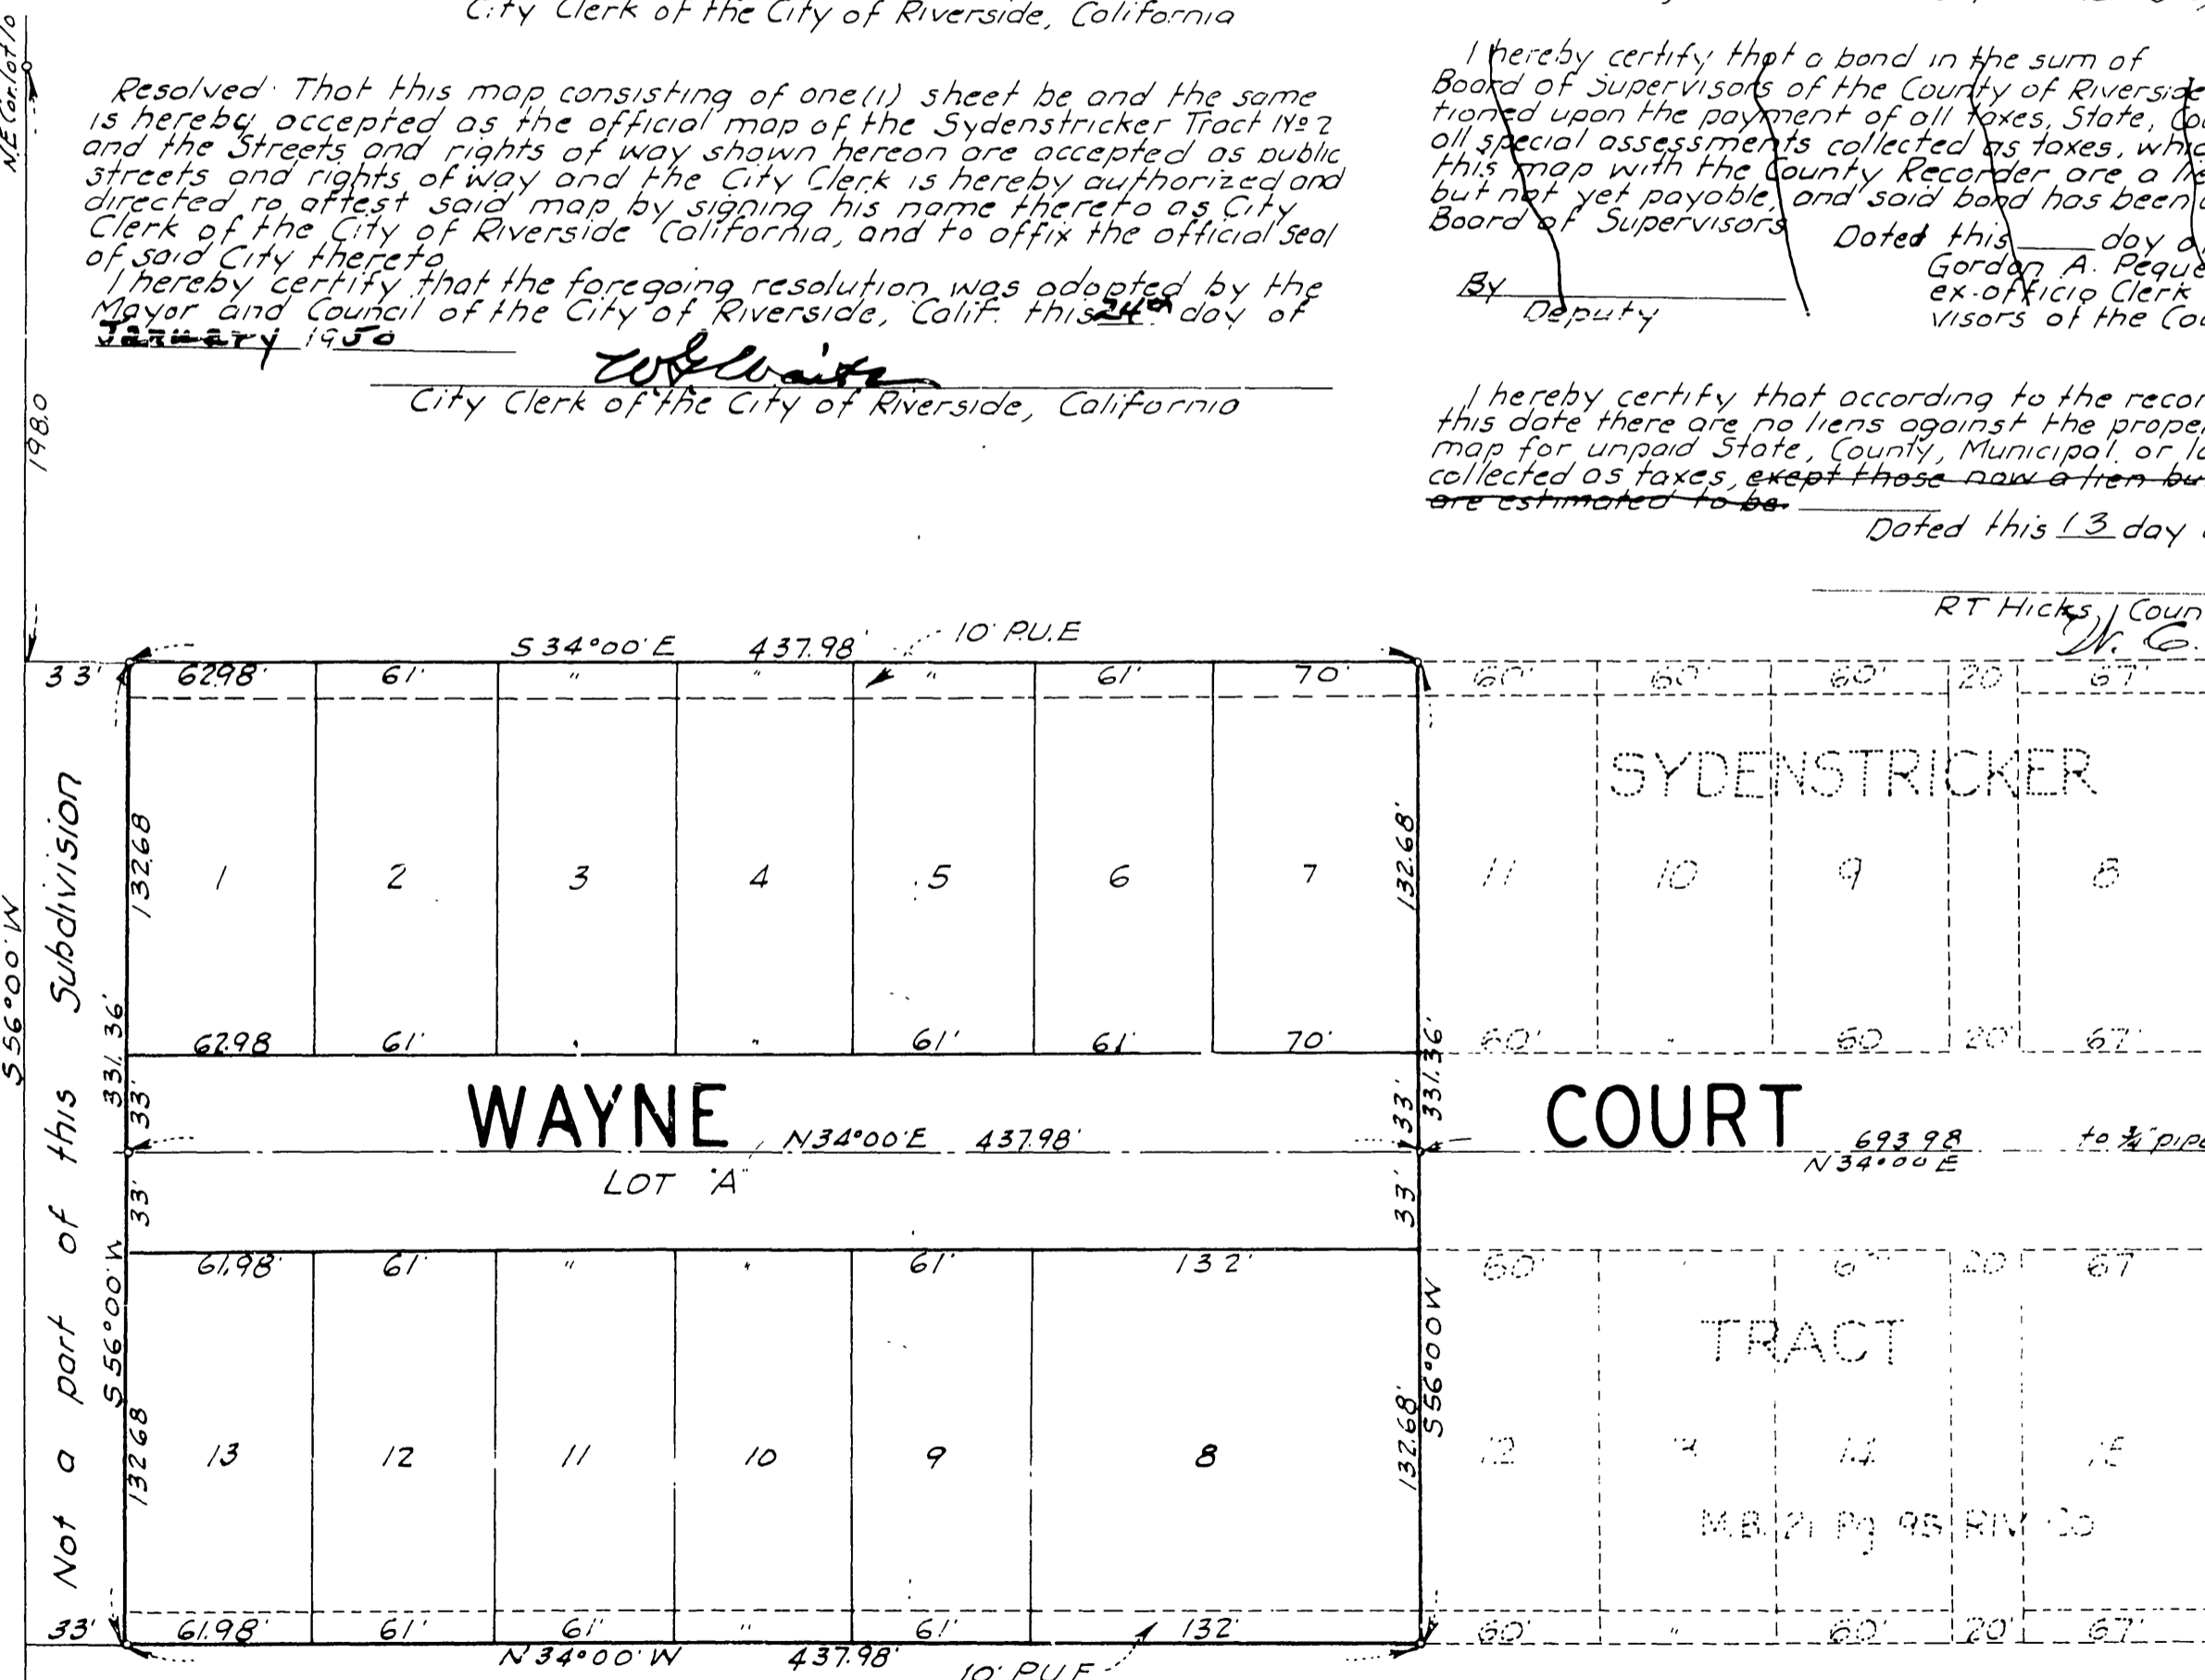 City Clerk of the City of Riverside, California
Resolved. That this map consisting of one(1) sheet be and the same
is hereby accepted as the official map of the Sydenstricker Tract Nº 2
and the Streets and rights of way shown hereon are accepted as public
streets and rights of way and the City Clerk is hereby authorized and
directed to attest said map by signing his name thereto as City
Clerk of the City of Riverside California, and to affix the official seal
of said City thereto
I hereby certify that the foregoing resolution was adopted by the
Mayor and Council of the City of Riverside, Calif. this 24th day of
January 1950
City Clerk of the City of Riverside, California
I hereby certify that a bond in the sum of
Board of Supervisors of the County of Riverside
tioned upon the payment of all taxes, State, Cou
all special assessments collected as taxes, whic
this map with the County Recorder are a lie
but not yet payable, and said bond has been
Board of Supervisors
Dated this ____ day o
Gordon A. Peque
By
ex-officio Clerk
Deputy
visors of the Cou
I hereby certify that according to the recor
this date there are no liens against the proper
map for unpaid State, County, Municipal or lo
collected as taxes, exept those now a lien bu
are estimated to be
Dated this 13 day
RT Hicks, Coun
N.E Cor. lot 10
198.0
S 56°00' W
Not a part of this Subdivision
33'
S 34°00' E 437.98'
10' P.U.E
62.98' 61' " " " 61' 70'
60' 60' 60' 20 67'
SYDENSTRICKER
132.68
132.68'
1 2 3 4 5 6 7
11 10 9 8
62.98 61' " " 61' 61' 70'
60' " 60 20' 67'
331.36'
33'
331.36'
33'
WAYNE COURT
N34°00'E 437.98'
693.98
N34°00'E
to ¾" pipe
LOT "A"
33'
33'
61.98' 61' " " 61' 132'
60' " 20' 67
S 56°00' W
S56°00W
TRACT
132.68
132.68'
13 12 11 10 9 8
12 14
M.B. 21 Pg 95 RIV Co
33'
61.98' 61' 61' " 61' 132'
60' " 60' 20' 67'
N 34°00' W 437.98'
10' P.U.E